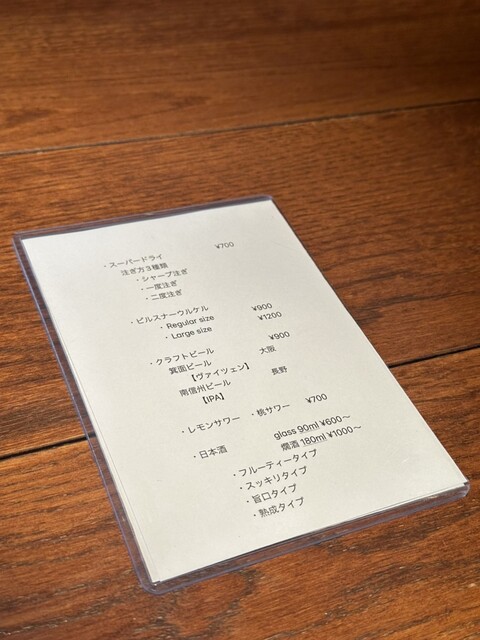 ・スーパードライ ¥700
注ぎ方3種類
・シャープ注ぎ
・一度注ぎ
・二度注ぎ
・ピルスナーウルケル
・Regular size ¥900
・Large size ¥1200
・クラフトビール ¥900
箕面ビール 大阪
【ヴァイツェン】
南信州ビール 長野
【IPA】
・レモンサワー ・桃サワー ¥700
・日本酒 glass 90ml ¥600〜
燗酒 180ml ¥1000〜
・フルーティータイプ
・スッキリタイプ
・旨口タイプ
・熟成タイプ